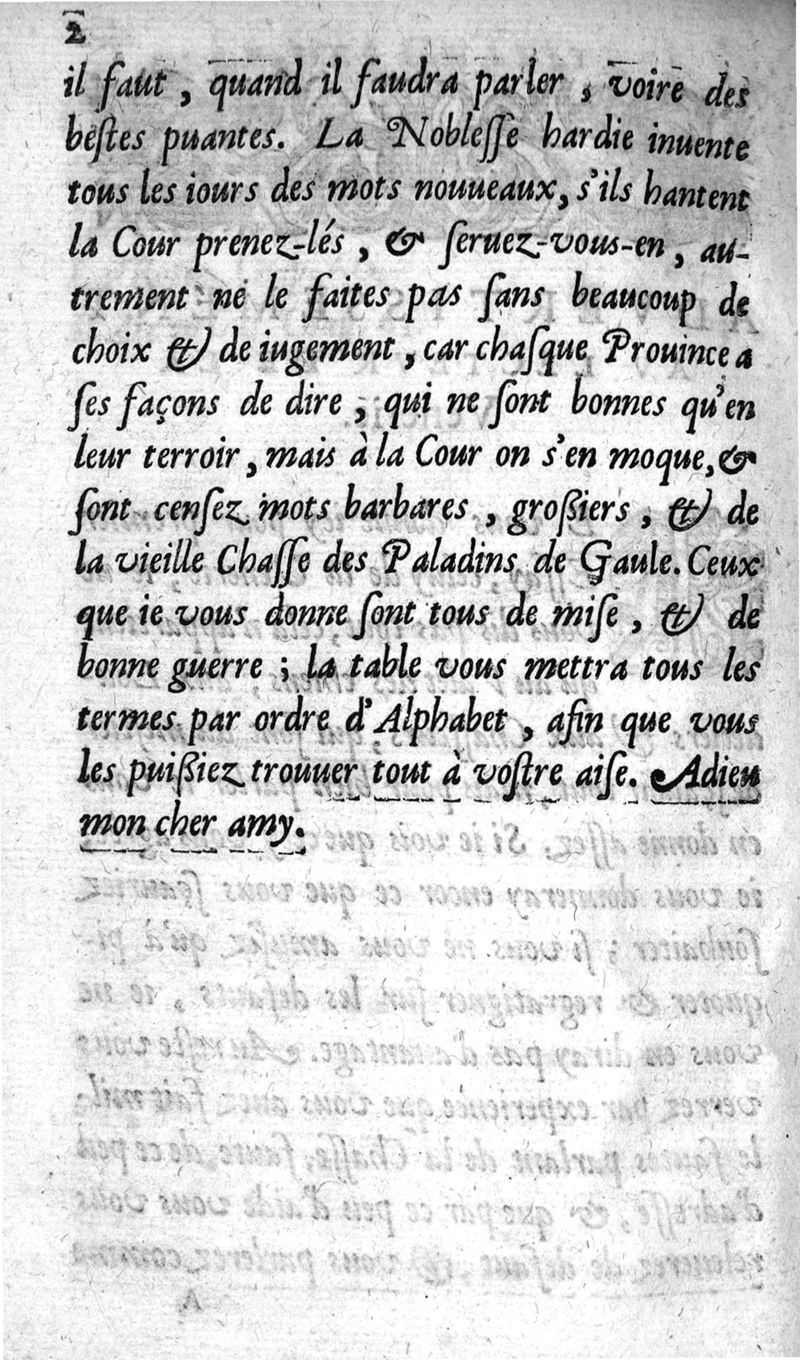 2
il faut, quand il faudra parler, voire des
beſtes puantes. La Nobleſſe hardie inuente
tous les iours des mots nouueaux, s'ils hantent
la Cour prenez-lés, & ſeruez-vous-en, au-
trement ne le faites pas ſans beaucoup de
choix & de iugement, car chaſque Prouince a
ſes façons de dire, qui ne ſont bonnes qu'en
leur terroir, mais à la Cour on s'en moque, &
ſont cenſez mots barbares, großiers, & de
la vieille Chaſſe des Paladins de Gaule. Ceux
que ie vous donne ſont tous de miſe, & de
bonne guerre; la table vous mettra tous les
termes par ordre d'Alphabet, afin que vous
les puißiez trouuer tout à voſtre aiſe. Adieu
mon cher amy.